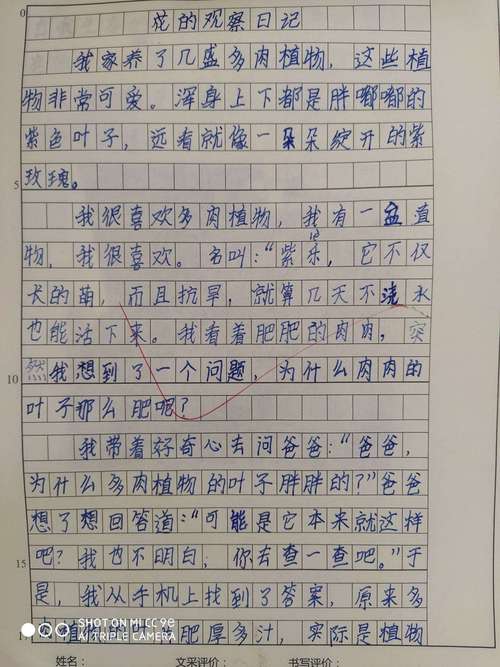 0
花的观察日记
我家养了几盛多肉植物，这些植
物非常可爱。浑身上下都是胖嘟嘟的
紫色叶子，远看就像一朵朵绽开的紫
5
玫瑰。
我很喜欢多肉植物，我有一盆植
物，我很喜欢。名叫：“紫乐，它不仅
长的萌，而且抗旱，就算几天不浇水
也能活下来。我看着肥肥的肉肉，突
10
然我想到了一个问题，为什么肉肉的
叶子那么肥呢？
我带着好奇心去问爸爸：“爸爸，
为什么多肉植物的叶子胖胖的？”爸爸
想了想回答道：“可能是它本来就这样
15
吧？我也不明白，你去查一查吧。”于
是，我从手机上找到了答案，原来多
植物的叶 肥厚多汁，实际是植物
SHOT ON MI CC 9E
AI TRIPLE CAMERA
姓名：
文采评价：
书写评价：